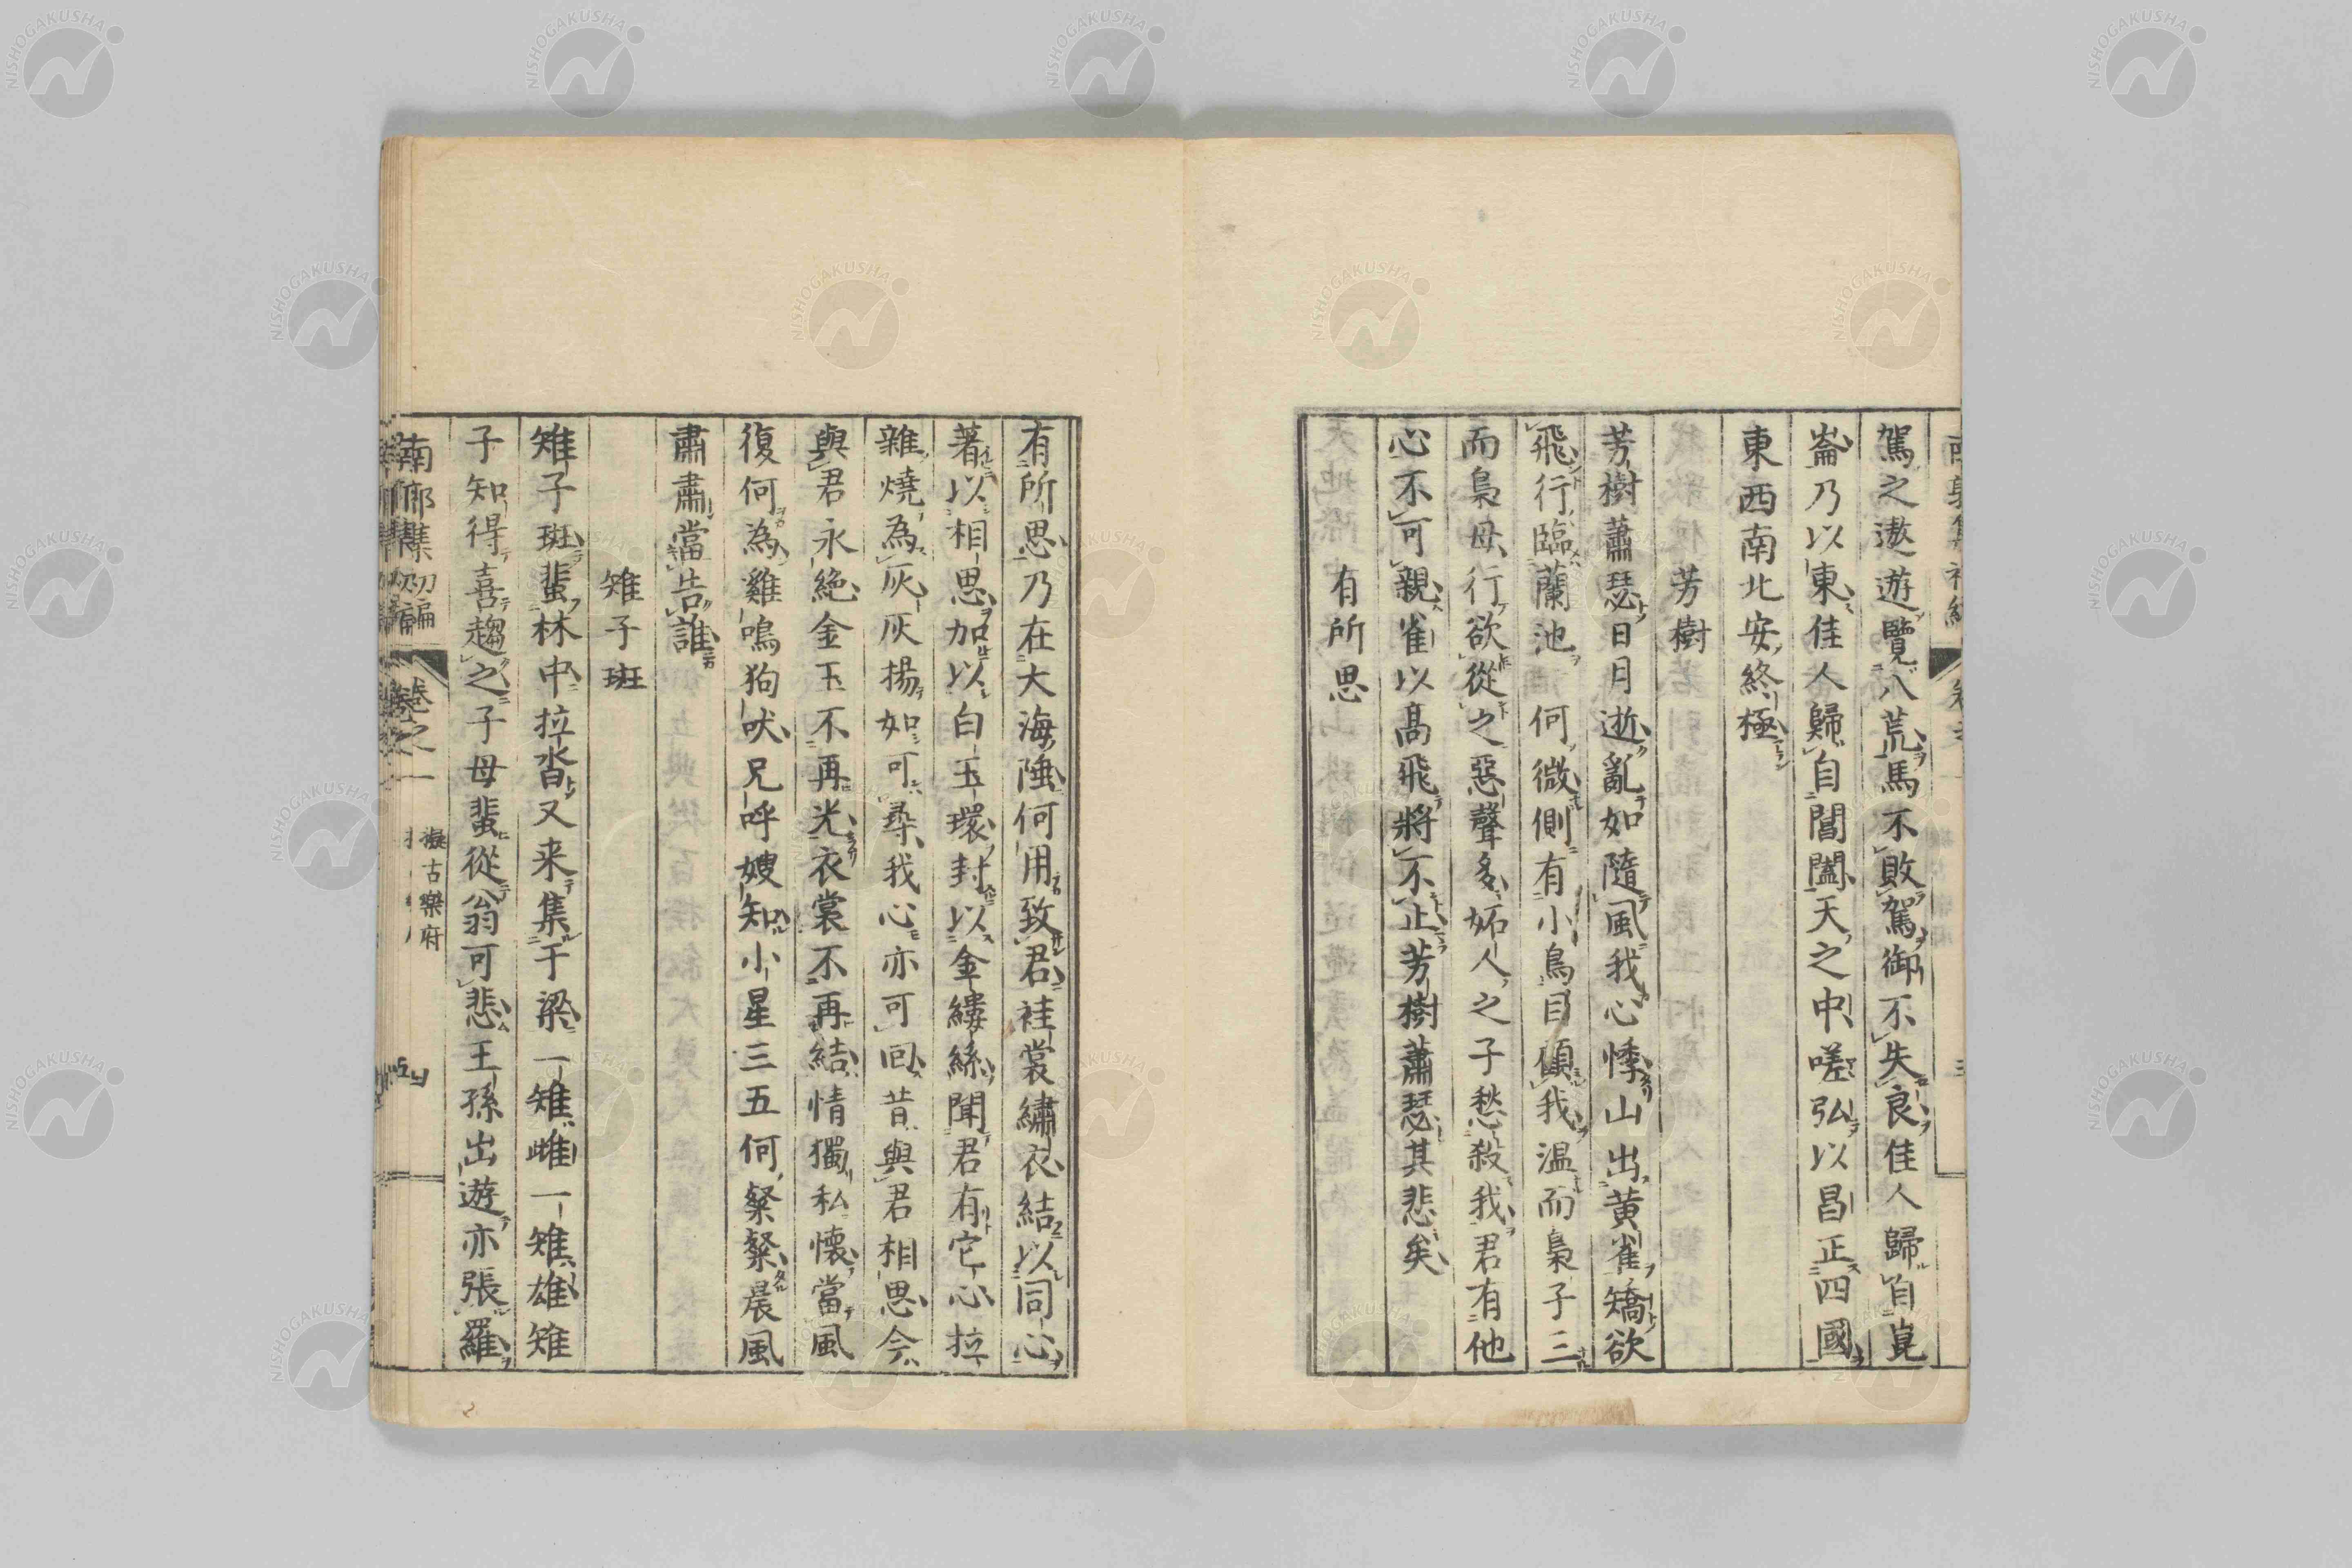 駕之遨遊覽八荒馬不敗駕御不失良佳人歸自崑
崙乃以東佳人歸自閶闔天之中嗟弘以昌正四國
東西南北安終極
芳樹
芳樹蕭瑟日月逝亂如隨風我心悸山出黄雀矯欲
飛行臨蘭池何微側有小鳥目傾我温而梟子三
而梟母行欲從之惡聲多妬人之子愁殺我君有他
心不可親雀以高飛將不止芳樹蕭瑟其悲矣
有所思
有所思乃在大海陲何用致君袿裳繡衣結以同心
著以相思加以白玉環封以金縷絲聞君有它心拉
雜燒為灰灰揚如可尋我心亦可回昔與君相思今
與君永絶金玉不再光衣裳不再結情獨私懷當風
復何為雞鳴狗吠兄呼嫂知小星三五何粲粲晨風
肅肅當告誰
雉子班
雉子斑蜚林中拉沓又来集于梁一雉雌一雉雄雉
子知得喜趨之子母蜚從翁可悲王孫出遊亦張羅
南郭集初編 卷之一 擬古樂府 四